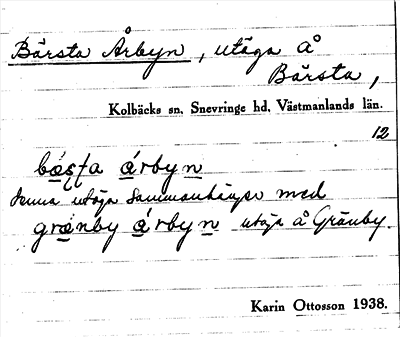 Bärsta Årbyn, utäga å
Bärsta,
Kolbäcks sn, Snevringe hd, Västmanlands län.
12
bást̨a árbyn
denna utäga sammanhänger med
grænby árbyn utäga å Gränby.
Karin Ottosson 1938.